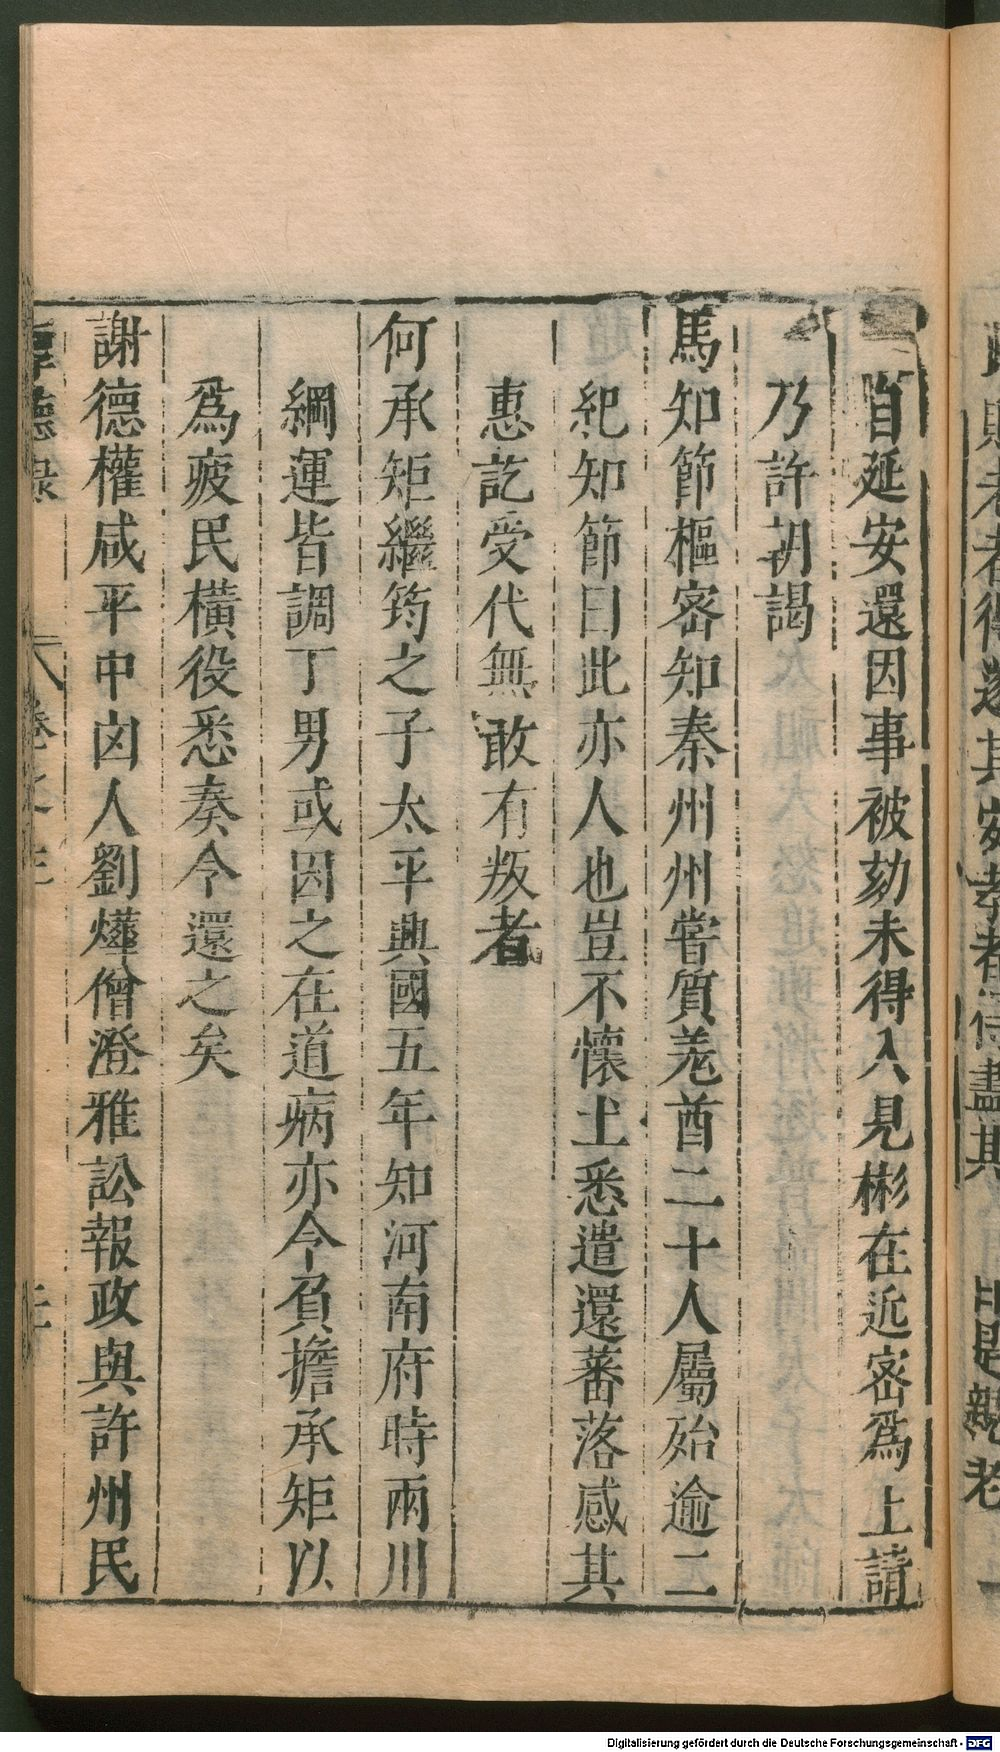 自延安還因事被劾未得入見彬在近密爲上請
乃許朝謁
馬知節樞密知秦州州嘗質羗酋二十人屬殆逾二
紀知節曰此亦人也豈不懷土悉遣還蕃落感其
惠訖受代無敢有叛者
何承矩繼筠之子太平興國五年知河南府時兩川
綱運皆調丁男或因之在道病亦令負擔承矩以
爲疲民橫役悉奏令還之矣
謝德權咸平中凶人劉燁僧澄雅訟報政與許州民
厚德錄
卷之三
Digitalisierung gefördert durch die Deutsche Forschungsgemeinschaft - DFG